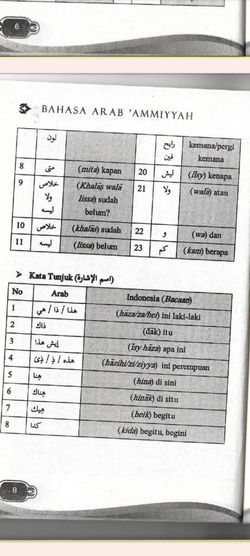 6
BAHASA ARAB 'AMMIYYAH
لون رايح kemana/pergi
فين kemana
8 متى (mita) kapan 20 ليش (lĩsy) kenapa
9 خلاص (Khalāṣ walā 21 ولا (walā) atau
ولا lissa) sudah
ليسه belum?
10 خلاص (khalās) sudah 22 و (wa) dan
11 ليسه (lissa) belum 23 كم (kam) berapa
Kata Tunjuk (اسم الإشارة)
No Arab Indonesia (Bacaan)
1 هذا / ذا / هي (hāza/za/hei) ini laki-laki
2 ذاك (dāk) itu
3 إيش هذا (Īsy hāza) apa ini
4 هذه / ذِ / ذِيْ (hāzihi/zi/ziyya) ini perempuan
5 هنا (hina) di sini
6 هناك (hināk) di situ
7 هيك (heik) begitu
8 كدا (kida) begitu, begini
8